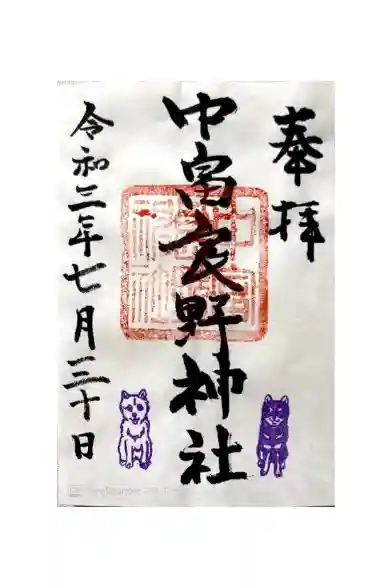 奉拝
中富良野神社
令和三年七月三十日